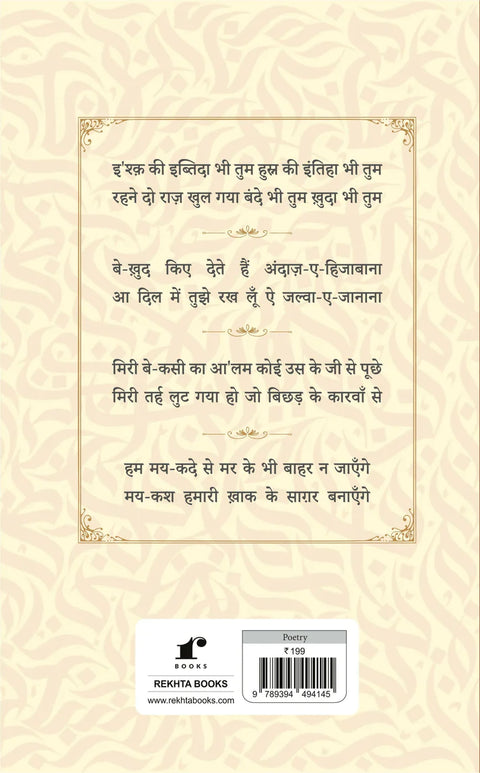 इ'श्क़ की इब्तिदा भी तुम हुस्न की इंतिहा भी तुम
रहने दो राज़ खुल गया बंदे भी तुम ख़ुदा भी तुम
बे-ख़ुद किए देते हैं अंदाज़-ए-हिजाबाना
आ दिल में तुझे रख लूँ ऐ जल्वा-ए-जानाना
मिरी बे-कसी का आ'लम कोई उस के जी से पूछे
मिरी तर्ह लुट गया हो जो बिछड़ के कारवाँ से
हम मय-कदे से मर के भी बाहर न जाएँगे
मय-कश हमारी ख़ाक के साग़र बनाएँगे
r
BOOKS
REKHTA BOOKS
www.rekhtabooks.com
Poetry
₹ 199
9 789394 494145